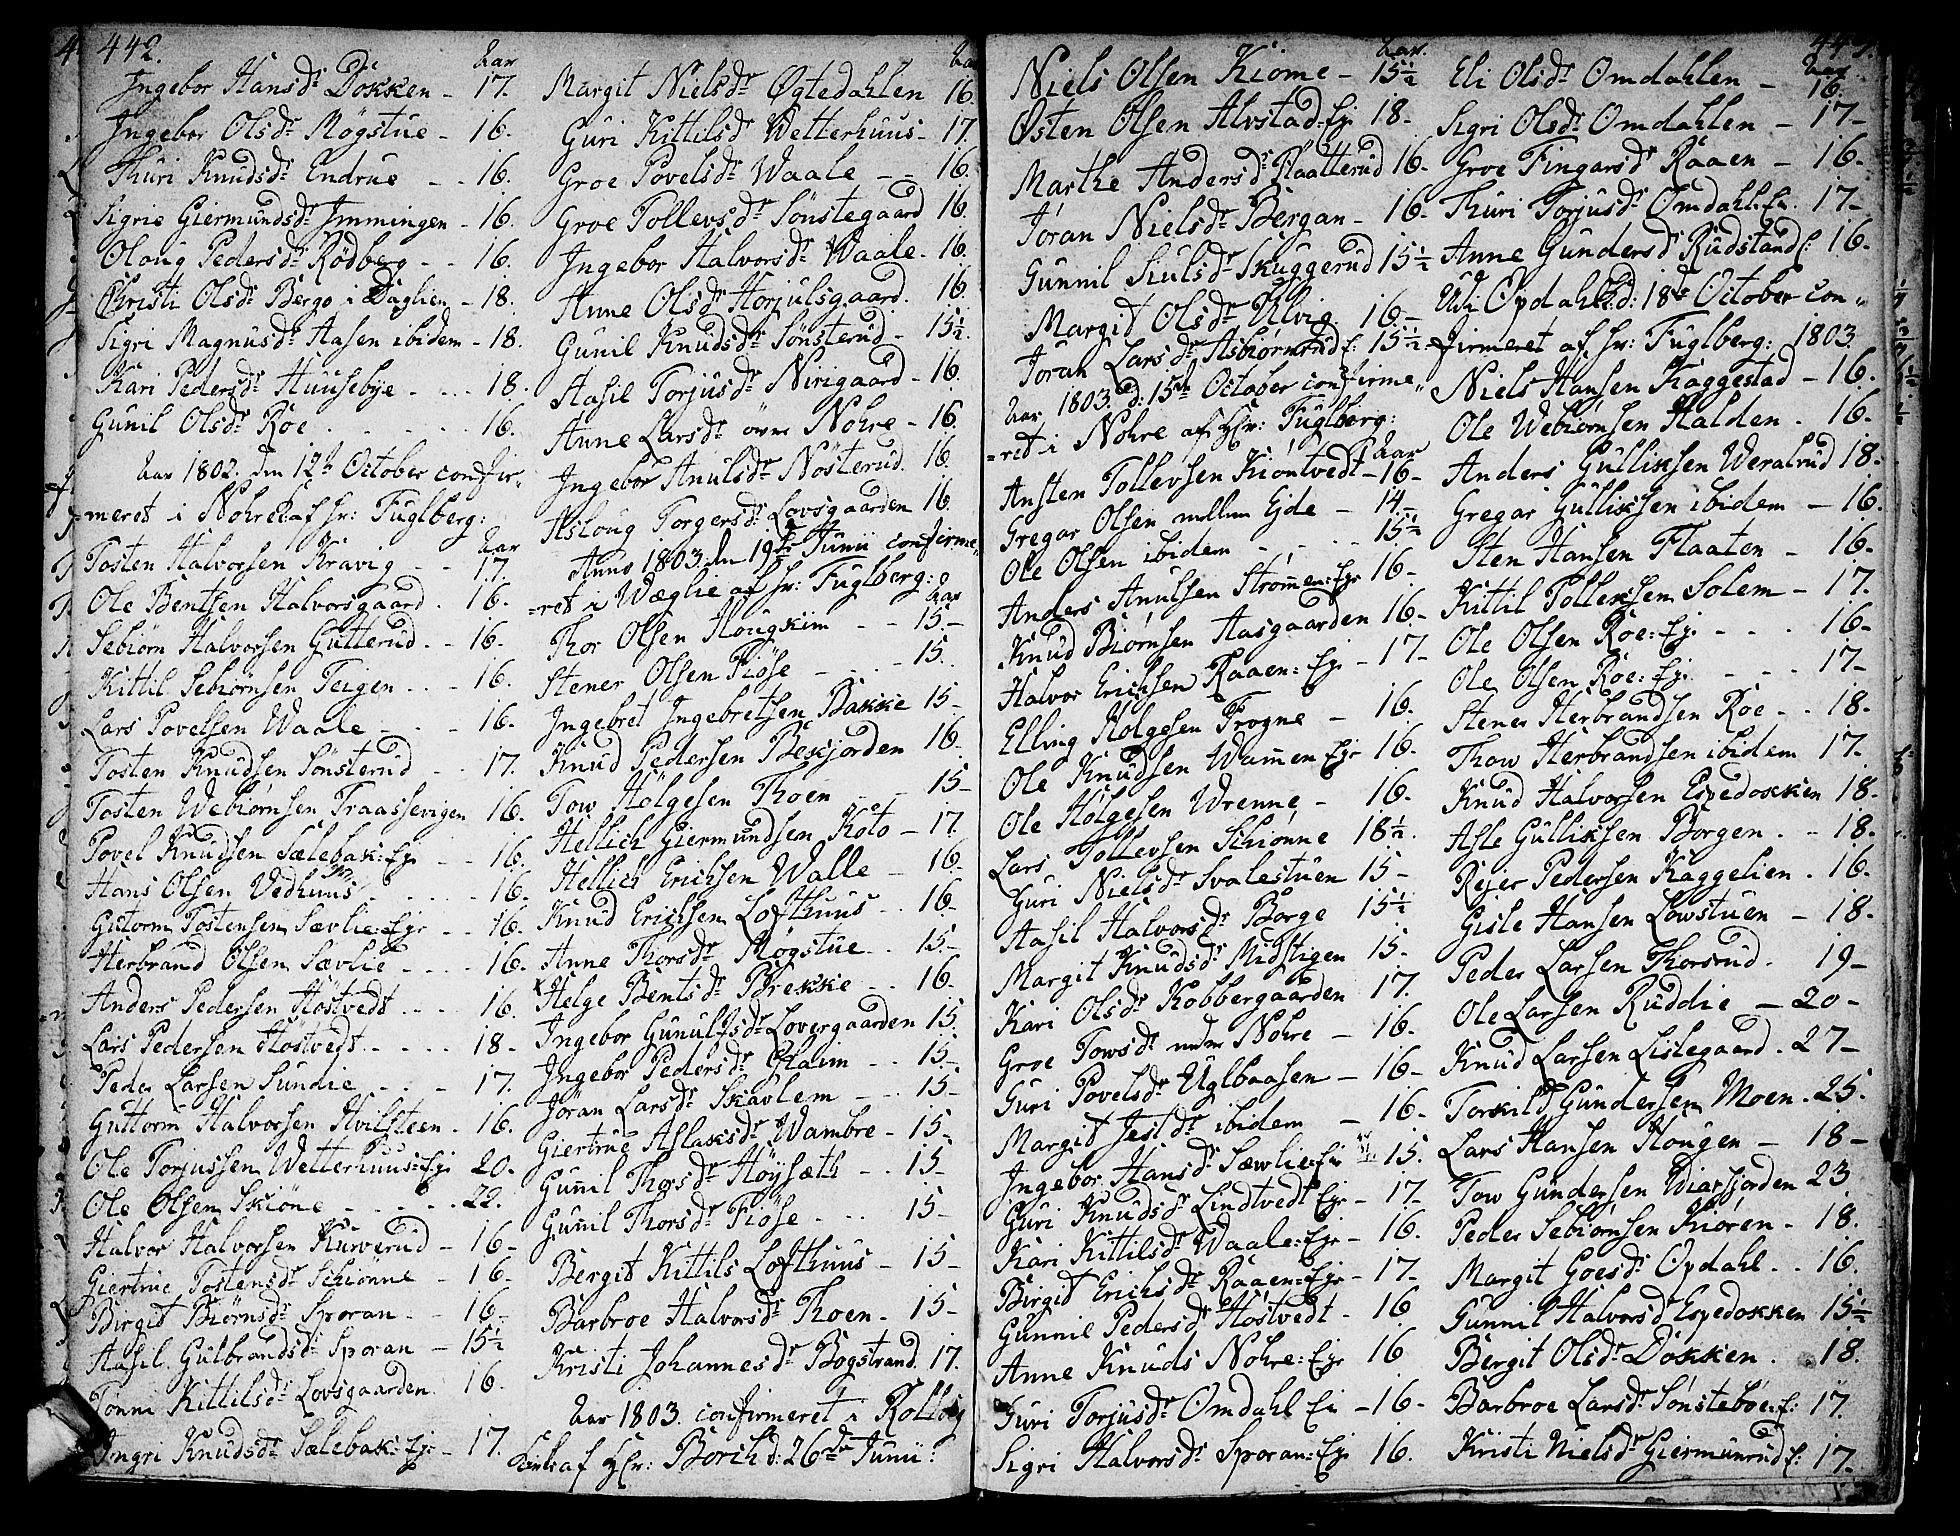 442.
Aar
Ingebor Hansdr Dokken - 17.
Ingebor Olsdr Møgstue - 16.
Thuri Knudsdr Endrue - - 16.
Sigrie Giermundsdr Immingen - 16.
Oloug Pedersdr Rødberg - - 16.
Christi Olsdr Bergo i Daglien - 18.
Sigri Magnusdr Aasen ibidem - 18.
Kari Pedersdr Huusebye - ... 18.
Gunil Olsdr Roe . . . . . 16.
Aar 1802. den 12te October confir„
meret i Nohre af hr: Fuglberg:
Aar
Tosten Halvorsen Kravig - - 17.
Ole Bentsen Halvorsgaard . 16.
Sebiørn Halvorsen Gutterud . - 16.
Kittil Sebiørnsen Teigen . . - 16.
Lars Povelsen Waale - - - - 16.
Tosten Knudsen Sønsterud - - 17.
Tosten Webiørnsen Fraassevigen 16.
Povel Knudsen Sælebak: Eje - - 16.
Hans Olsen Vedhuus . . . . . 16.
Gutorm Tostensen Sævlie: Eje - - 16.
Herbrand Olsen Sævlie . . . . 16.
Anders Pedersen Høstvedt . . . . 16.
Lars Pedersen Høstvedt . . . . 18 -
Peder Larsen Sundie - - - 17.
Guttorm Halvorsen Hvilsteen . 16.
Ole Torjussen Wetterhuus: Eje 20.
Ole Olsen Skiøne - - - - . 22.
Halvor Halvorsen Kurverud - 16 -
Giertrue Tostensdr Schiønne - 16 -
Birgit Biørnsdr Sporan . - - 16 -
Aasil Gulbrandsdr Sporan - 15½
Tonni Kittilsdr Lovsgaarden 16.
Ingri Knudsdr Sælebak: Eje - 17.
Margit Nielsdr Øgtedahlen 16.
Guri Kittilsdr Wetterhuus - 17.
Groe Povelsdr Waale - - 16.
Groe Tollevsdr Sønstegaard 16.
Ingebor Halvorsdr Waale - 16.
Anne Olsdr Horjulsgaard. 16.
Gunil Knudsdr Sønsterud - 15½
Aasil Torjusdr Nirigaard - 16.
Anne Larsdr øvre Nohre - 16.
Ingebor Anulsdr Nøsterud. 16.
Asloug Torgersdr Lovsgaarden 16.
Anno 1803 den 19de Junii confirme„
=ret i Wæglie af hr: Fuglberg:
Aar
Thor Olsen Hougkim - - 15 -
Stener Olsen Fiøse - . . - 15.
Ingebret Ingebretsen Bakke 15 -
Knud Pedersen Beskjorden 16 -
Tow Holgesen Thoen - - - 15 -
Hellich Giermundsen Koto - 17.
Hellich Erichsen Walle - 16 -
Knud Erichsen Lofthuus - . 16 -
Anne Thorsdr Møgstue . . 15 -
Helge Bentsdr Brekke - . 16 -
Ingebor Gunulfsdr Lovergaarden 15.
Ingebor Pedersdr Glaim - . 15 -
Jøran Larsdr Skavlem - . . 15 -
Giertrue Aslaksdr Wambre - 15 -
Gunil Thorsdr Høysæth - . 15 -
Gunil Thorsdr Fiøse . . . 15 -
Bergit Kittils Lofthuus - 15 -
Barbroe Halvorsdr Thoen . 15 -
Kristi Johannesdr Bogstrand. 17.
Aar 1803. confirmeret i Rollog
Kirke af Hr: Borch d: 26de Junii:
Aar.
Niels Olsen Kiome - 15½
Østen Olsen Alvstad: Eje 18 -
Marthe Andersdr Flaatterud 16 -
Jøran Nielsdr Bergan - 16 -
Gunnil Sulsdr Skuggerud 15½
Margit Olsdr Ulvig 16 -
Jøran Larsdr Asbiørnrud E: 15½ -
Aar 1803. d: 15de October confirme„
=ret i Nohre af Hr: Fuglberg:
Aar
Ansten Tollevsen Kiontvedt - 16 -
Gregar Olsen mellem Ejde - 14 -
Ole Olsen ibidem - - - - 15½
Anders Anulsen Strømen: Eje 16 -
Knud Biørnsen Aasgaarden 16 -
Halvor Erichsen Raaen: Eje - 17 -
Elling Holgesen Frogne - 16.
Ole Knudsen Wamen Eje 16.
Ole Holgesen Wrenne - 16.
Lars Tollevsen Schiønne 18½.
Guri Nielsdr Svalestuen 15 -
Aasil Halvorsdr Borge 15½
Margit Knudsdr Midstigen 15 -
Kari Olsdr Kobbergaarden 17.
Groe Towsdr nedre Nohre - 16.
Guri Povelsdr Uglbaasen - 16 -
Margit Jesldr ibidem - 16 -
Ingebor Hansdr Sævlie: Eje 15.
Guri Knudsdr Lindtvedt Eje - 17 -
Kari Kittilsdr Waale: Eje - 16.
Birgit Erichsdr Raaen: Eje - 17 -
Gunnil Pedersdr Høstvedt - 16
Anne Knuds Nohre: Eje 16
Guri Torjusdr Omdahl Ei - 16 -
Sigri Halvorsdr Sporan: Eje 16.
443.
Aar.
Eli Olsdr Omdahlen - 16.
Sigri Olsdr Omdahlen - 17 -
Groe Fingarsdr Raaen - 16 -
Thuri Torjusdr Omdahl: Ei. 17 -
Anne Gundersdr Rudstand E: 16 -
Udi Opdahl d: 18de October con„
firmeret af hr: Fuglberg: 1803
Niels Hansen Kaggestad - 16.
Ole Webiørnsen Halden . 16 -
Anders Gulliksen Weralrud 18 -
Gregar Gulliksen ibidem - 16.
Sten Hansen Flaaten - 16 -
Kittil Tollefsen Solem - 17.
Ole Olsen Roe: Eje . - - . 16 -
Ole Olsen Roe: Eje . - - . 17 -
Stener Herbrandsen Roe . . 18.
Thow Herbrandsen ibidem 17 -
Knud Halvorsen Espedokken 18.
Asle Gulliksen Borgen . . 18.
Rejer Pedersen Kaggelien . 16.
Gisle Hansen Lowstuen - 18 -
Peder Larsen Thorsrud . 19 -
Ole Larsen Ruddie - 20 -
Knud Larsen Listegaard . 27 -
Torkild Gundersen Moen . 25.
Lars Hansen Hougen - 18 -
Tow Gundersen Wiarfjorden 23
Peder Sebiørnsen Kiøren - 18.
Margit Goesdr Opdahl . . 16.
Gunnil Halvorsdr Espedokken 15½
Bergit Olsdr Dokken . . 18.
Barbroe Larsdr Sønstebøe: E: 17.
Kristi Nielsdr Giermunrud E: 17 -